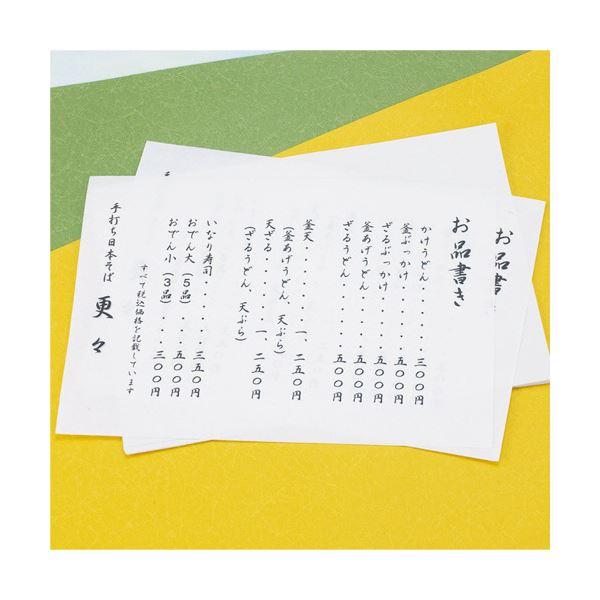 お品書き
かけうどん・・・・・三〇〇円
釜ぶっかけ・・・・・五〇〇円
ざるぶっかけ・・・・五〇〇円
釜あげうどん・・・・五〇〇円
ざるうどん・・・・・五〇〇円
釜天・・・・・・一、二五〇円
(釜あげうどん、天ぷら)
天ざる・・・・・一、二五〇円
(ざるうどん、天ぷら)
いなり寿司・・・・・三五〇円
おでん大(5品)・・五〇〇円
おでん小(3品)・・三〇〇円
すべて税込価格を記載しています
手打ち日本そば 更々
お品書